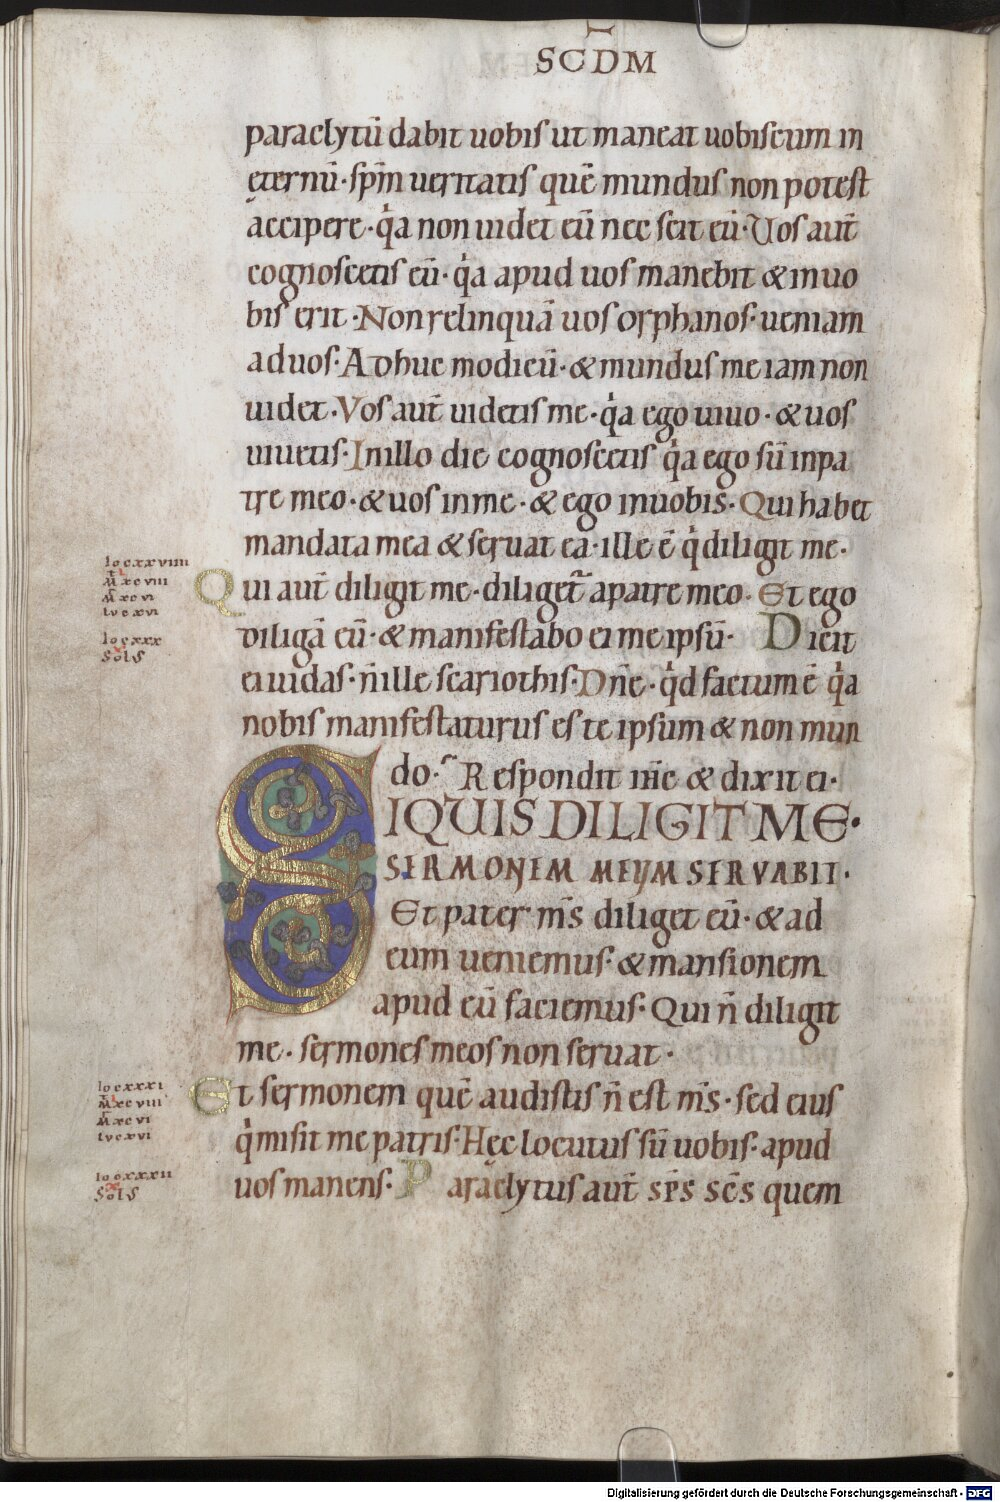 SCD̄M
paraclytū dabit uobis ut maneat uobiscum in
ęternū· sp̄m ueritatis quē mundus non potest
accipere· qⁱa non uidet eū nec scit eū· Vos aut̄
cognoscetis eū· qⁱa apud uos manebit & in uo
bis erit· Non relinquā uos orphanos· ueniam
ad uos· Adhuc modicū· & mundus me iam non
uidet· Vos aut̄ uidetis me· qⁱa ego uiuo· & uos
uiuetis· In illo die cognoscetis qⁱa ego sū in pa
tre meo· & uos in me· & ego in uobis· Qui habet
mandata mea & seruat ea· ille ē qⁱ diligit me·
Io cxxviiii
M xcviii
Qui aut̄ diligit me· diliget᷑ a patre meo· Et ego
M xcvi
Lu cxvi
diligā eū· & manifestabo ei me ipsū· Dicit
Io cxxx
Sol S
ei iudas· n̄ ille scariothis· Dn̄e· qⁱd factum ē qⁱa
nobis manifestaturus es te ipsum & non mun
do· Respondit ih̄c & dixit ei·
SIQUIS DILIGIT ME·
SERMONEM MEUM SERVABIT·
Et pater m̄s diliget eū· & ad
eum ueniemus· & mansionem
apud eū faciemus· Qui n̄ diligit
me· sermones meos non seruat·
Io cxxxi
Et sermonem quē audistis n̄ est m̄s· sed eius
M xcviii
M xcvi
qⁱ misit me patris· Hęc locutus sū uobis· apud
Lu cxvi
Io cxxxii
Sol S
uos manens· Paraclytus aut̄ sp̄s sc̄s quem
Digitalisierung gefördert durch die Deutsche Forschungsgemeinschaft - DFG